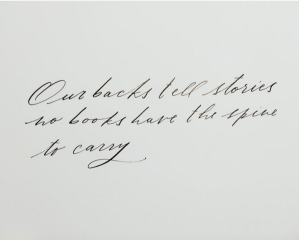 Our backs tell stories
no books have the spine
to carry